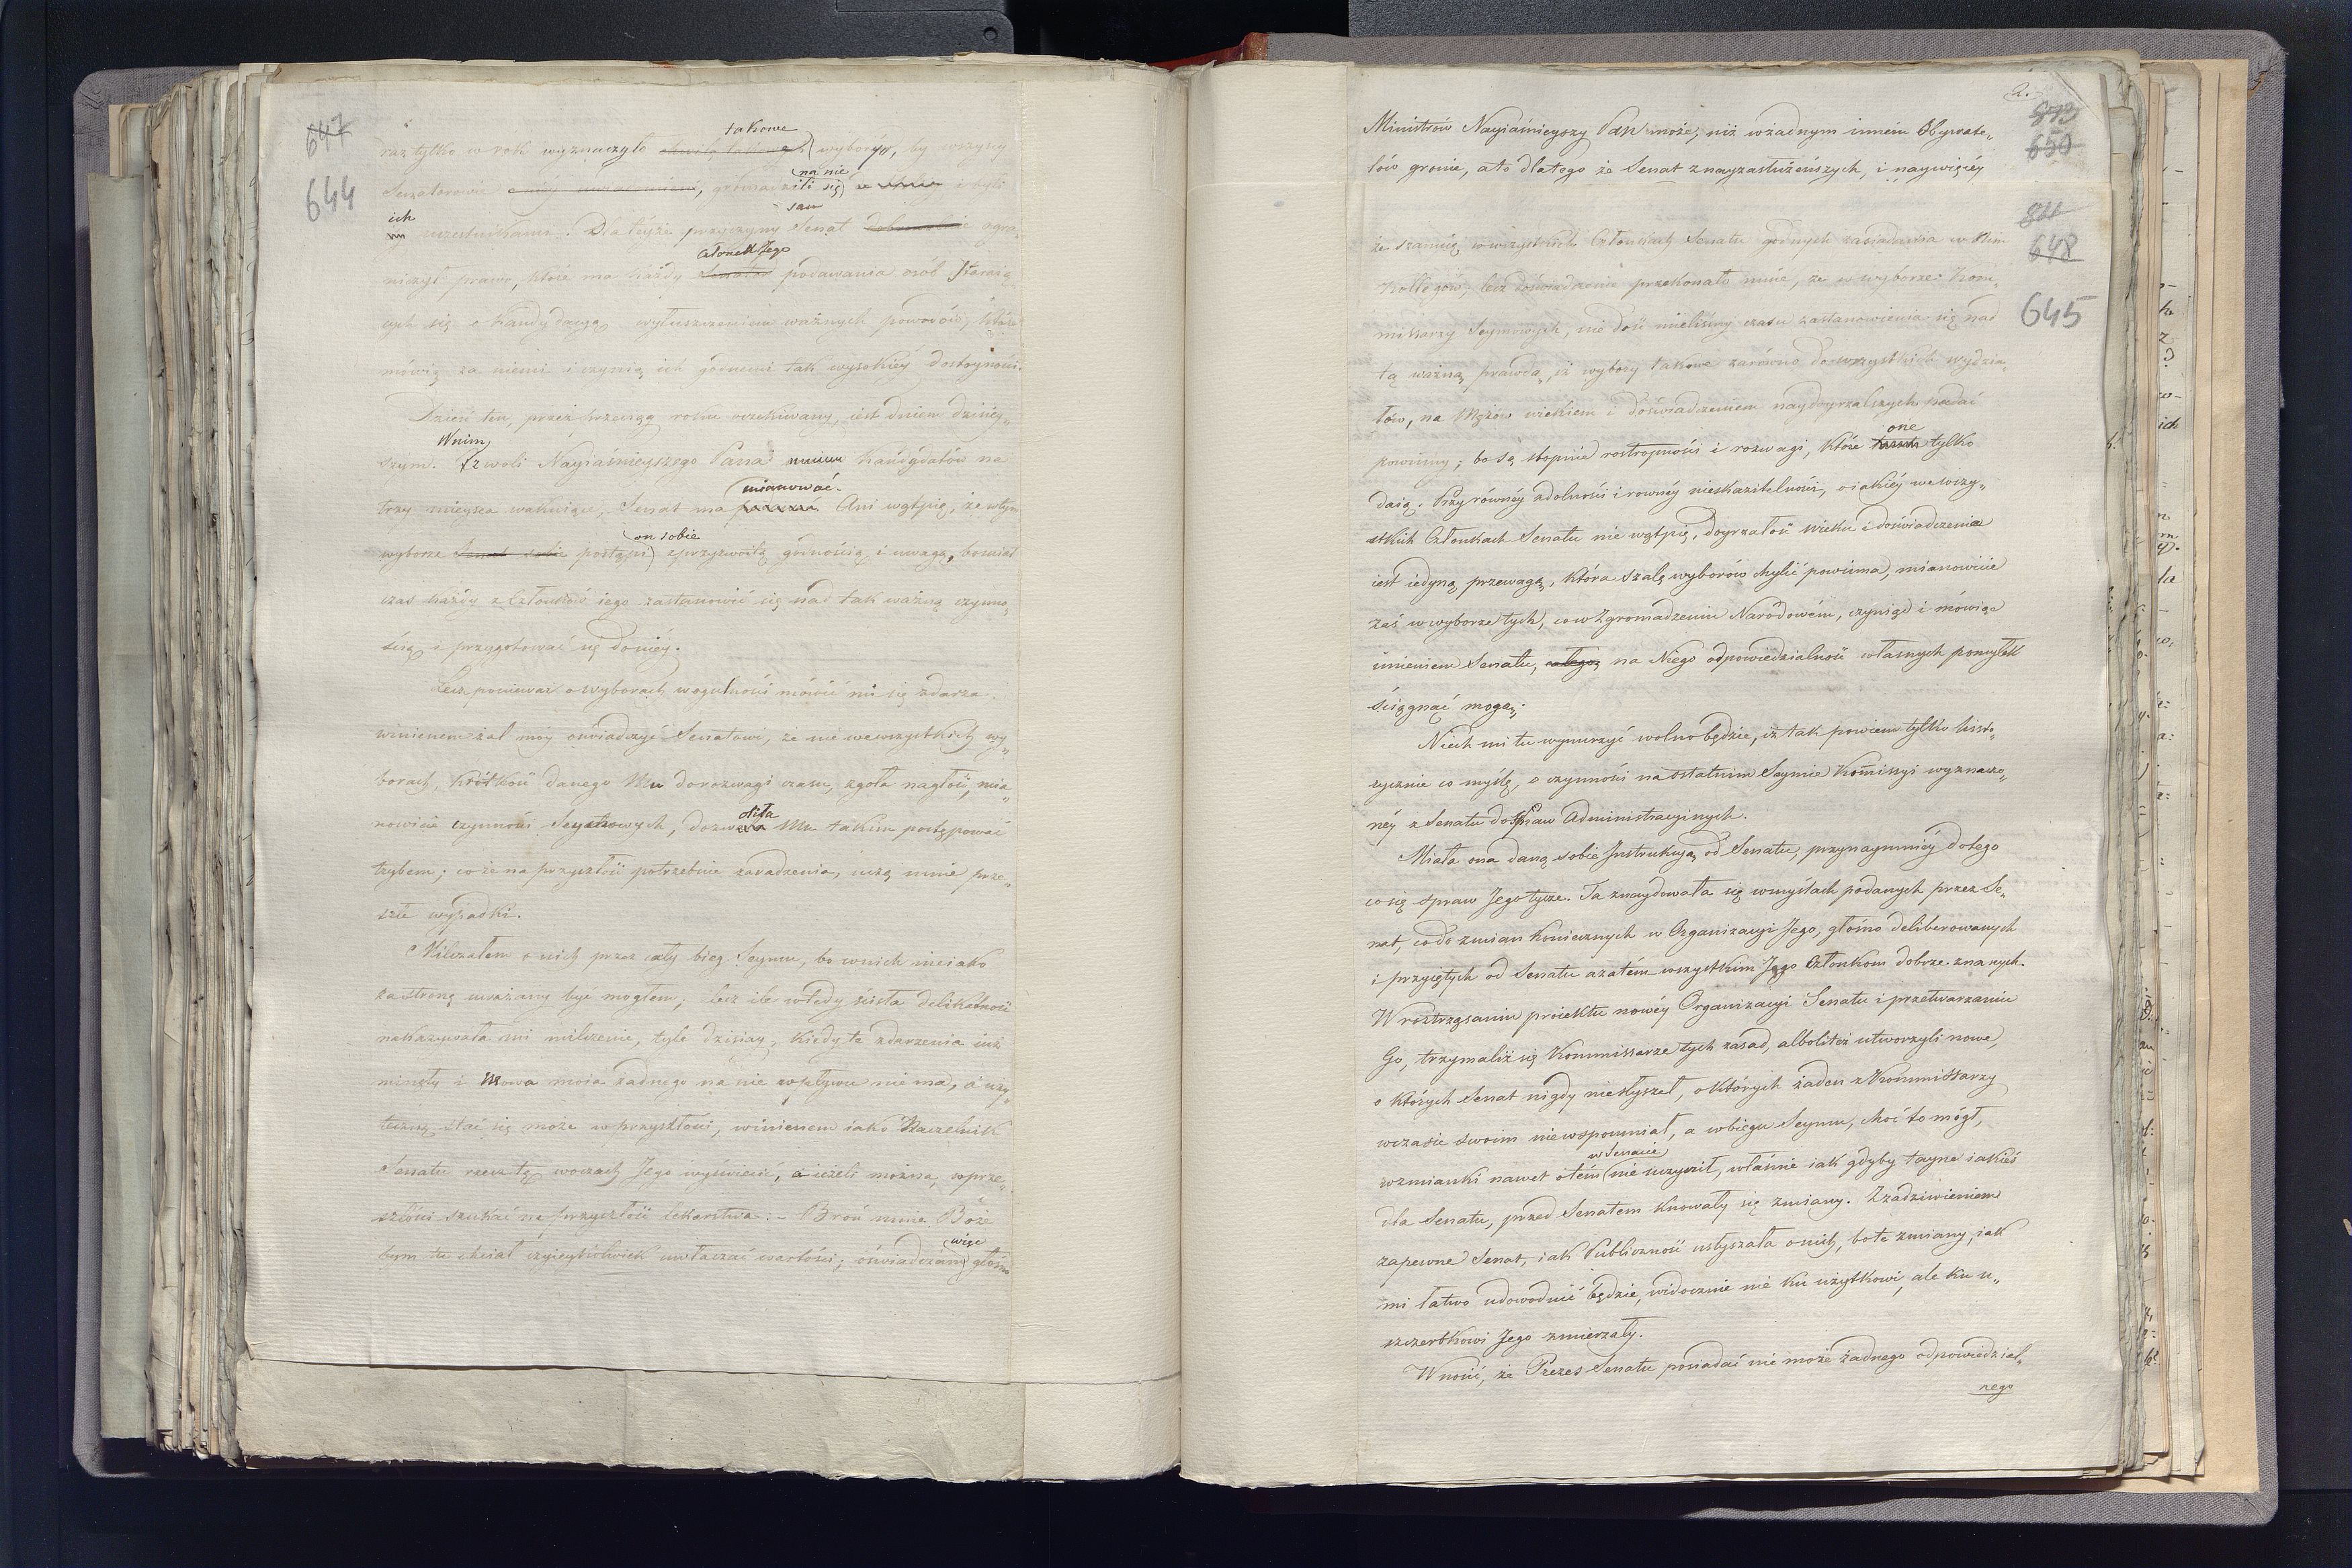 647
644
takowe
raz tylko w rok wyznaczyło wybory, by wszyscy
na nie
Senatorowie gromadzili się i byli
ich sam
uczestnikami. Dla teyże przyczyny Senat ogra„
członek Jego
niczył prawo, które ma każdy Senator podawania osób staraią„
cych się o kandydacyą wyłuszczeniem ważnych powodów, które
mówią za niemi i czynią ich godnemi tak wysokiéy dostoyności.
Dzień ten, przez przeciąg roku oczekiwany, iest dniem dzisiey„
W nim,
szym. z woli Nayiaśnieyszego Pana kandydatów na
mianować.
trzy mieysca wakuiące, Senat ma Ani wątpię, że w tym
on sobie
wyborze Senat sobie postąpi z przyzwoitą godnością i uwagą, bo miał
czas każdy z Członków iego zastanowić się nad tak ważną czynno„
ścią i przygotować się do niéy.
Lecz ponieważ o wyborach w ogulności mówić mi się zdarza
winienem żal móy oświadczyć Senatowi, że nie we wszystkich wy„
borach, krótkość danego Mu do rozwagi czasu, zgoła nagłość, mia„
nowicie czynności Seymowych, dozwoliła Mu takim postępować
trybem; co że na przyszłość potrzebuie zaradzenia, uczą mnie prze„
szłe wypadki.
Milczałem o nich przez cały bieg Seymu, bo w nich nieiako
za stronę uważany być mogłem; lecz ile wtedy ścisła delikatność
nakazywała mi milczenie, tyle dzisiay, kiedy te zdarzenia iuż
minęły i Mowa moia żadnego na nie wpływu nie ma, a uży„
teczną stać się może w przyszłości, winienem iako Naczelnik
Senatu rzecz tę w oczach Jego wyświecić, a ieżeli można, w prze„
szłości szukać na przyszłość lekarstwa. – Broń mnie Boże
więc
bym tu chciał czyieykolwiek uwłaczać wartości; oświadczam głośno
2.
813
650
Ministrów Nayiaśnieyszy Pan może, niż w żadnym innem Obywate„
lów gronie, a to dlatego że Senat z nayzasłużeńszych, i naywięcéy
811
648
645
że szanuię w wszystkich Członkach Senatu godnych zasiadania w Nim
kollegów, lecz doświadczenie przekonało mnie, że w wyborze Kom„
missarzy Seymowych, nie dość mieliśmy czasu zastanowienia się nad
tą ważną prawdą, iż wybory takowe zarówno do wszystkich wydzia„
łów, na Mężów wiekiem i doświadczeniem naydoyrzalszych padać
one
powinny; bo są stopnie roztropności i rozwagi, które tylko
daią. Przy równéy zdolności i rownéy nieskazitelności, o iakiéy we wszy„
stkich Członkach Senatu nie wątpię, doyrzałość wieku i doświadczenia
iest iedyną przewagą, która szalę wyborów chylić powinna, mianowicie
zaś w wyborze tych, co w Zgromadzeniu Narodowém, czyniąc i mówiąc
imieniem Senatu, na Niego odpowiedzialność własnych pomyłek
ściągnąć mogą.
Niech mi tu wynurzyć wolno będzie, iż tak powiem tylko histo„
rycznie co myślę, o czynności na ostatnim Seymie Kommissyi wyznaczo„
néy z Senatu do Spraw Administracyinych.
Miała ona daną sobie Instrukcyą od Senatu, przynaymniéy do tego
co się spraw Jego tycze. Ta znaydowała się w myślach podanych przez Se„
nat, co do zmian koniecznych w Organizacyi Jego, głośno deliberowanych
i przyiętych od Senatu a zatém wszystkim Jego Członkom dobrze znanych.
W roztrząsaniu proiektu nowéy Organizacyi Senatu i przetwarzaniu
Go, trzymaliż się Kommissarze tych zasad, alboliteż utworzyli nowe,
o których Senat nigdy niesłyszał, o których żaden z Kommissarzy
w czasie swoim niewspomniał, a w biegu Seymu, choć to mógł,
w Senacie
wzmianki nawet o tém nie uczynił, właśnie iak gdyby tayne iakieś
dla Senatu, przed Senatem knowały się zmiany. Z zadziwieniem
zapewne Senat, iak Publiczność usłyszała o nich, bo te zmiany, iak
mi łatwo udowodnić będzie, widocznie nie ku użytkowi, ale ku u„
szczerbkowi Jego zmierzały.
Wnosić, że Prezes Senatu posiadać nie może żadnego odpowiedzial„
nego